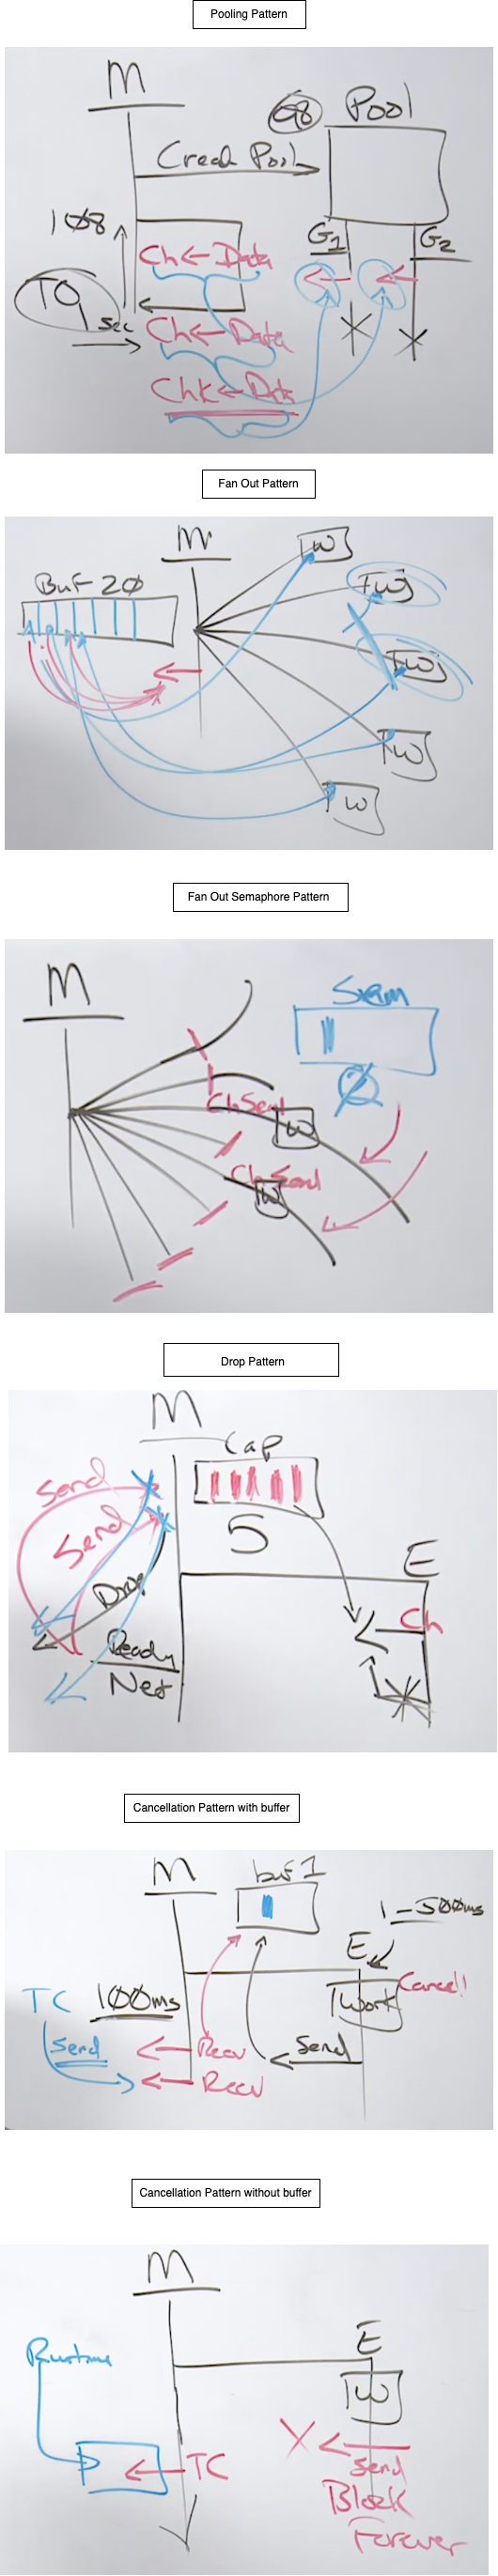 Pooling Pattern
M
G8 Pool
Creat Pool
G1
G2
Ch<-Data
TO
1 sec
Ch<-Data
Fan Out Pattern
M
W
Buf 20
W
W
W
W
Fan Out Semaphore Pattern
M
Sem
2
Ch Send
W
Ch Send
W
Drop Pattern
M
Cap
5
Send
Send
E
Drop
Ch
Ready
Net
Cancellation Pattern with buffer
M
buf 1
1-500ms
E
Cancel!
TC
100ms
Work
Send
Recv
Send
Recv
Cancellation Pattern without buffer
M
E
Runtime
W
TC
Send
Block
Forever